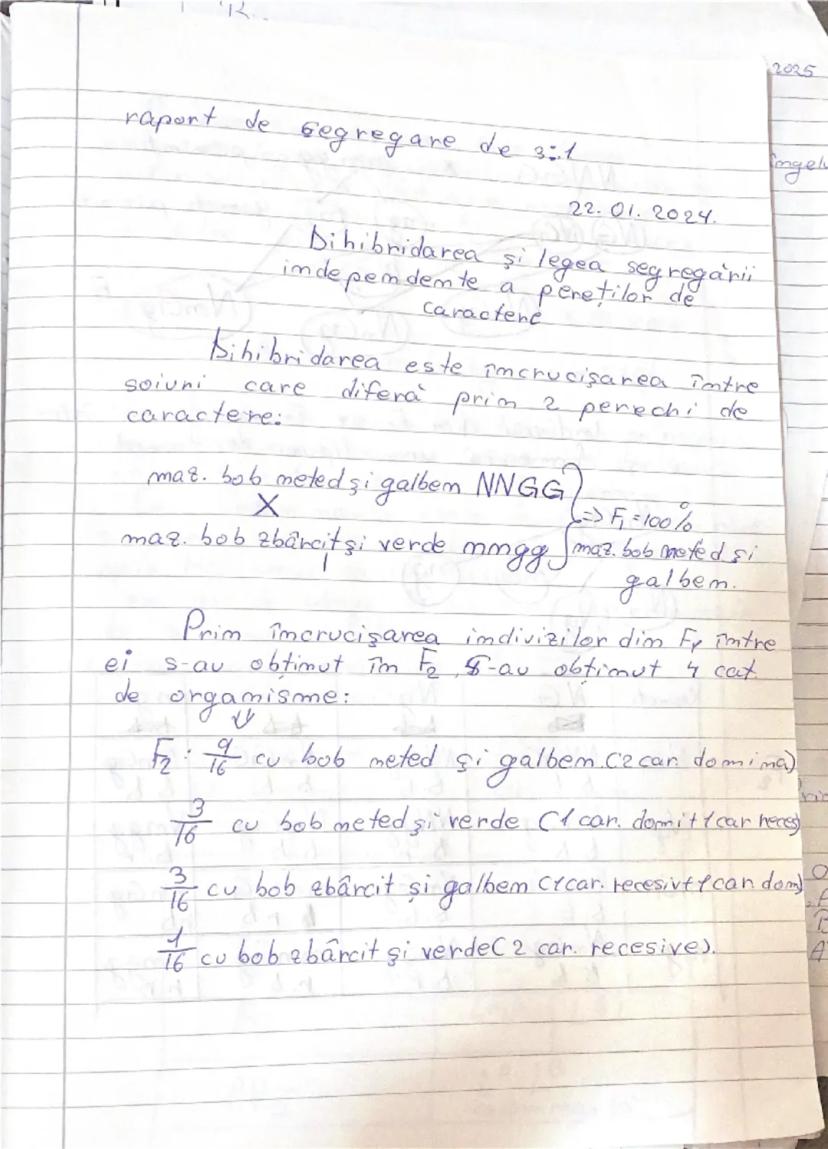 2025
raport de segregare de 3:1
22.01.2024.
Dihibridarea și legea segregării
independente a pereților de
caractere
Dihibridarea este încrucișarea între
soiuri care diferă prin 2 perechi de
caractere.
maz. bob neted și galben NNGG
X
=> F₁ = 100%
maz. bob zbârcit și verde nngg maz. bob neted și
galben.
Prin încrucișarea indivizilor din F₁ între
ei s-au obținut în F₂ s-au obținut 4 cat
de organisme:
F₂ : 9/16 cu bob neted și galben (2 car. domina)
3/16 cu bob neted și verde (1 car. domi+1 car reces)
3/16 cu bob zbârcit și galben (1 car. recesiv+1 car. dom)
1/16 cu bob zbârcit și verde (2 car. recesive).